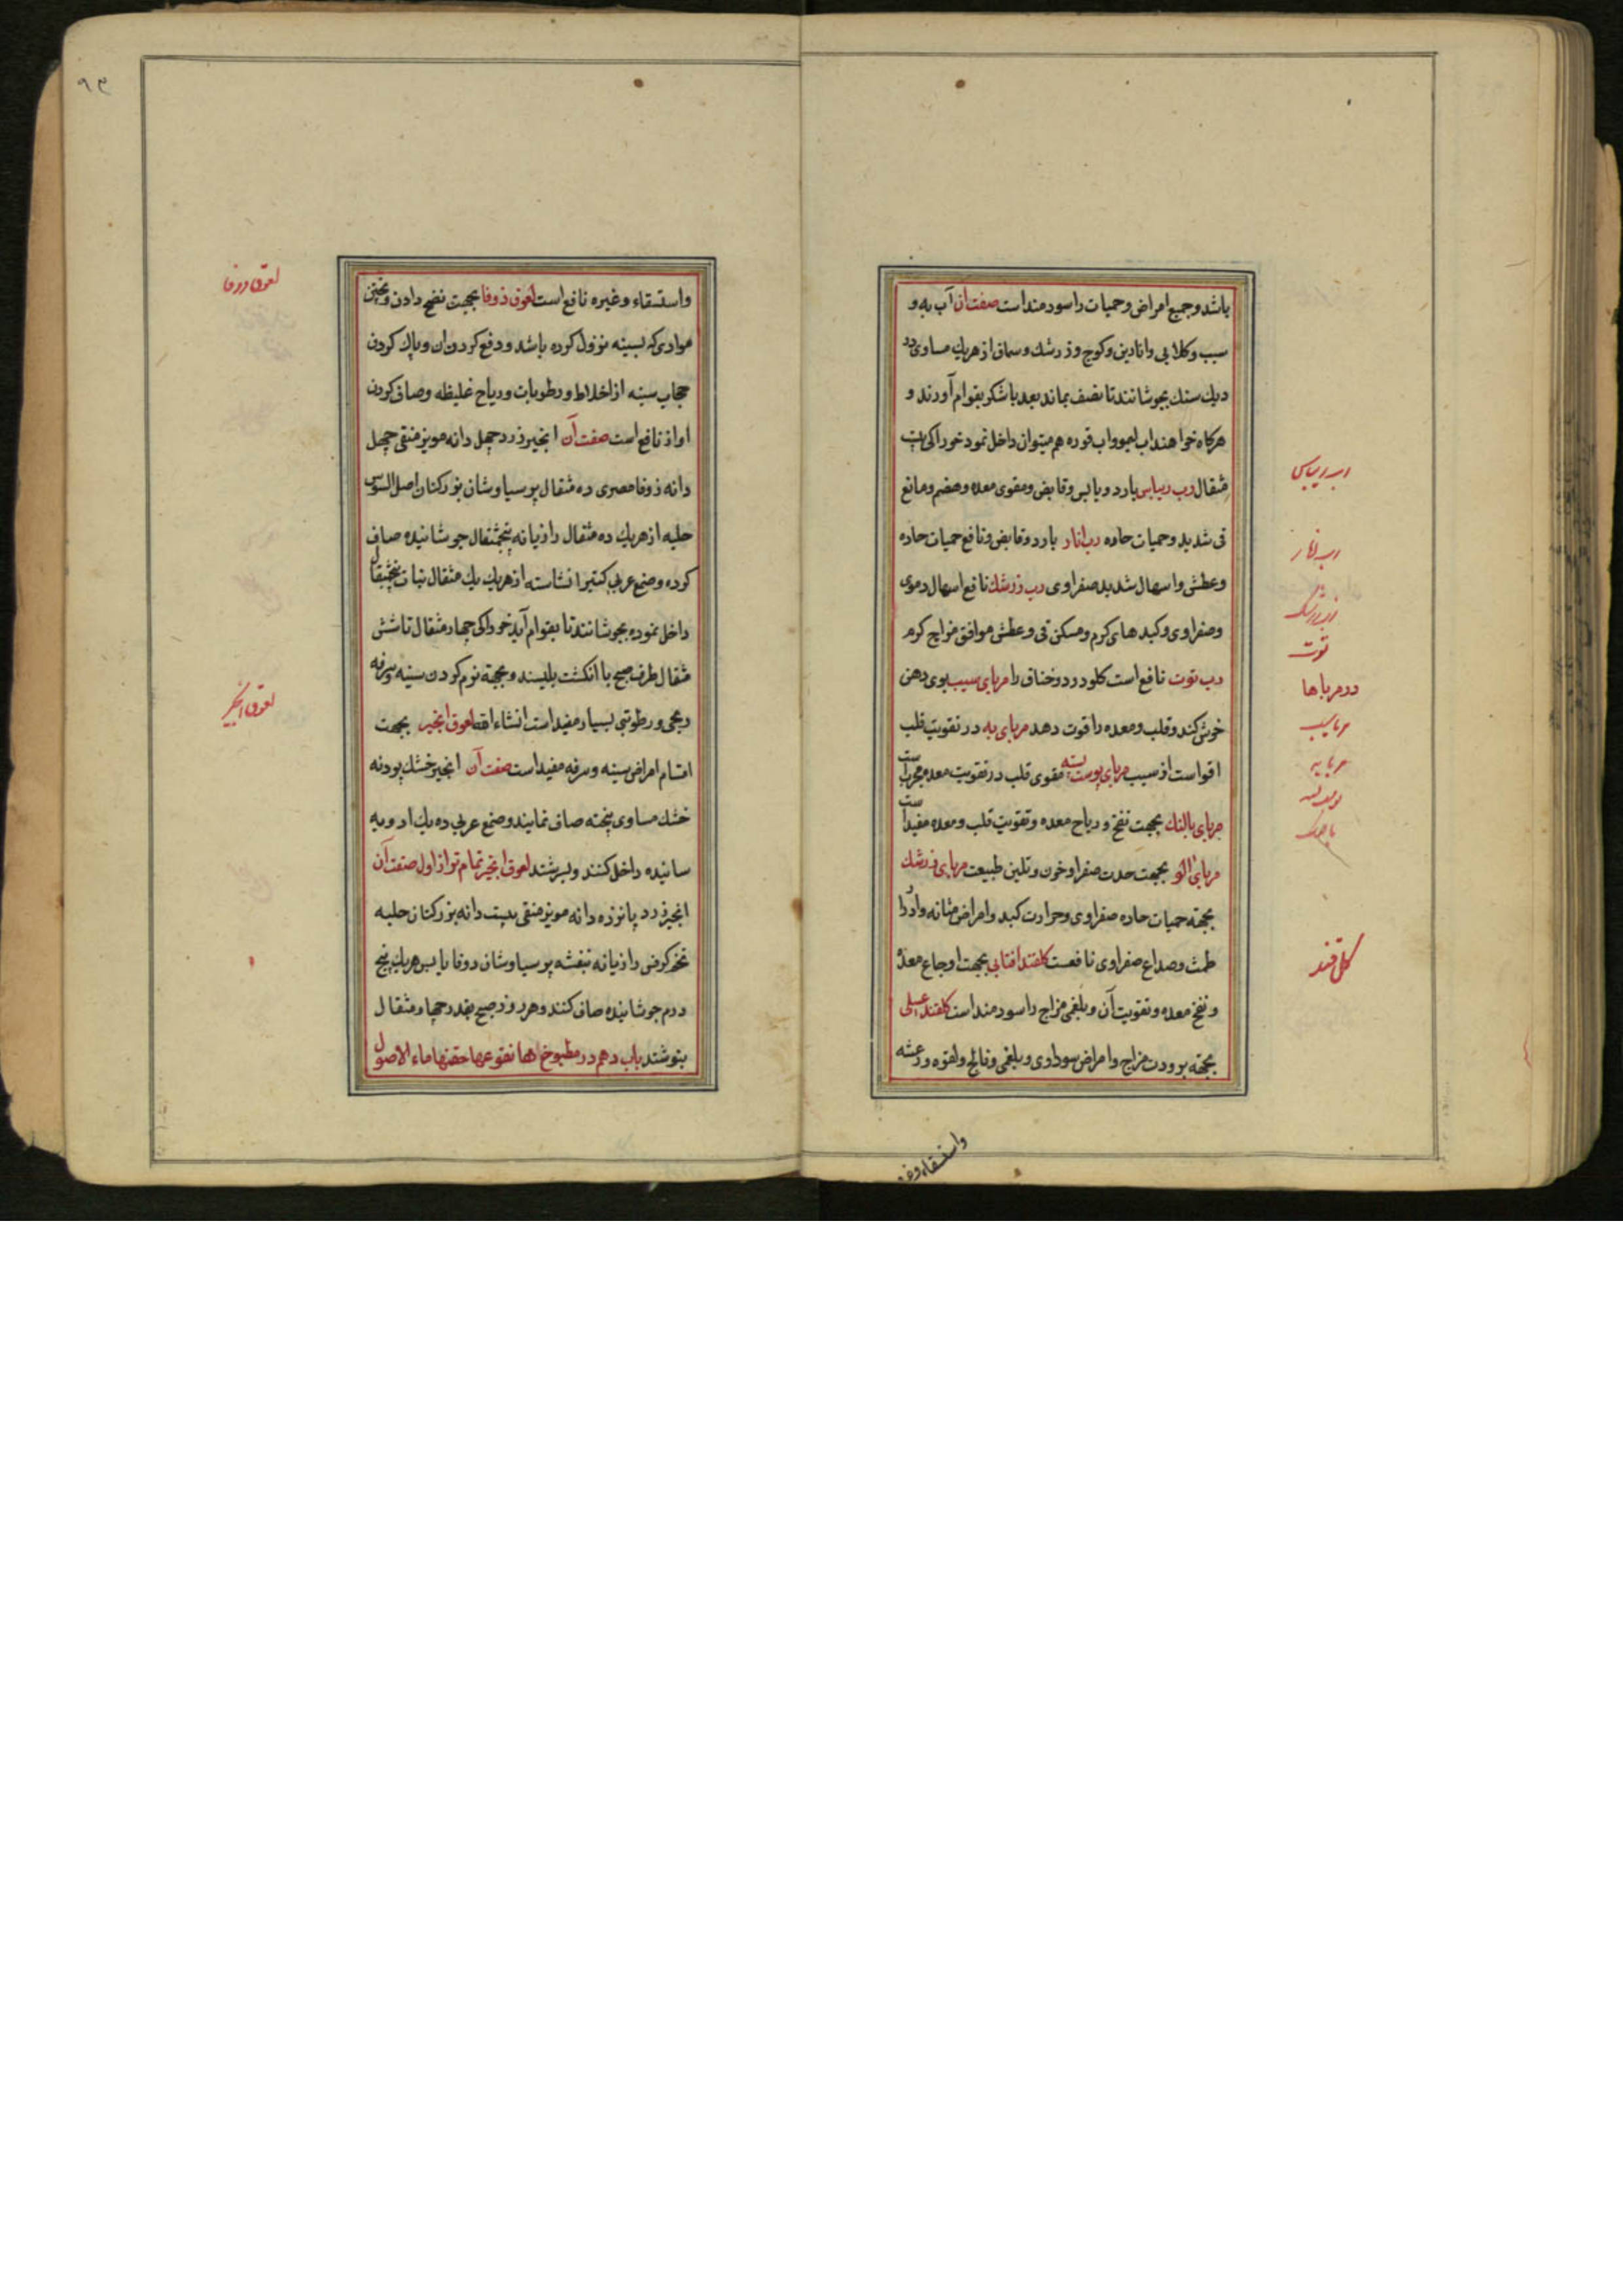 باشد و جمیع امراض و حمیات را سودمند است صفت ان آب به و
سیب و کلابی و انارین و کوج و زرشک و سماق از هریک مساوی در
دیک سنک بجوشانند تا بنصف بماند بعد با شکر بقوام آورند و
هرکاه خواهند اب لیمو و اب قوره هم میتوان داخل نمود خوراکی یک
مثقال رب ریباس بارد و یابس و قابض و مقوی معده و هضم و مانع
قی شدید و حمیات حاده رب انار بارد و قابض و نافع حمیات حاده
و عطش و اسهال شدید صفراوی رب زرشک نافع اسهال دموی
و صفراوی و کبدهای کرم و مسکن قی و عطش موافق مزاج کرم
رب توت نافع است کلودرد و خناق را مربای سیب بوی دهن
خوش کند و قلب و معده را قوت دهد مربای به در تقویت قلب
اقواست از سیب مربای پوست پسته مقوی قلب در تقویت معده مجربست
مربای بالنک بجهت نفخ و ریاح معده و تقویت قلب و معده مفید است
مربای آلو بجهت حدت صفرا و خون و تلین طبیعت مربای زرشک
بجهته حمیات حاده صفراوی و حرارت کبد و امراض مثانه و ادرار
طمث و صداع صفراوی نافعست کلقند افتابی بجهت اوجاع معده
و نفخ معده و تقویت آن و بلغمی مزاج را سودمند است کلقند عسلی
بجهته برودت مزاج و امراض سوداوی و بلغمی و فالج و لقوه و رعشه
واستسقاء وغیره
رب ریباس
رب انار
رب زرشک
توت
در مرباها
مربا سیب
مربا به
کل قند
۹۳
واستسقاء و غیره نافع است لعوق زوفا بجهت نضج دادن و پختن
موادی که بسینه نزول کرده باشد و دفع کردن ان و پاک کردن
حجاب سینه از اخلاط و رطوبات و ریاح غلیظه و صاف کردن
اواز نافع است صفت آن انجیر زرد چهل دانه مویز منقی چهل
دانه زوفا مصری ده مثقال پرسیاوشان بزرکتان اصل السوس
حلبه از هریک ده مثقال رازیانه پنجمثقال جوشانیده صاف
کرده و صمغ عربی کتیرا نشاسته از هریک یک مثقال نبات پنجمثقال
داخل نموده بجوشانند تا بقوام آید خوراکی چهار مثقال تا شش
مثقال طرف صبح با انکشت بلیسند و بجهة نرم کردن سینه و سرفه
ریحی و رطوبتی بسیار مفید است انشاء الله لعوق انجیر بجهت
اقسام امراض سینه و سرفه مفید است صفت آن انجیر خشک پودنه
خشک مساوی پخته صاف نمایند و صمغ عربی ده یک ادویه
سائیده داخل کنند و بسرشند لعوق انجیر تمام تر از اول صفت آن
انجیر زرد پانزده دانه مویز منقی بیست دانه بزرکتان حلبه
تخم کرفس رازیانه بنفشه پرسیاوشان زوفا یابس هریک پنج
درم جوشانیده صاف کنند و هر روز صبح بقدر چهار مثقال
بنوشند باب دهم در مطبوخ اها نقوعها حقنها ماء الاصول
لعوق زوفا
لعوق انجیر